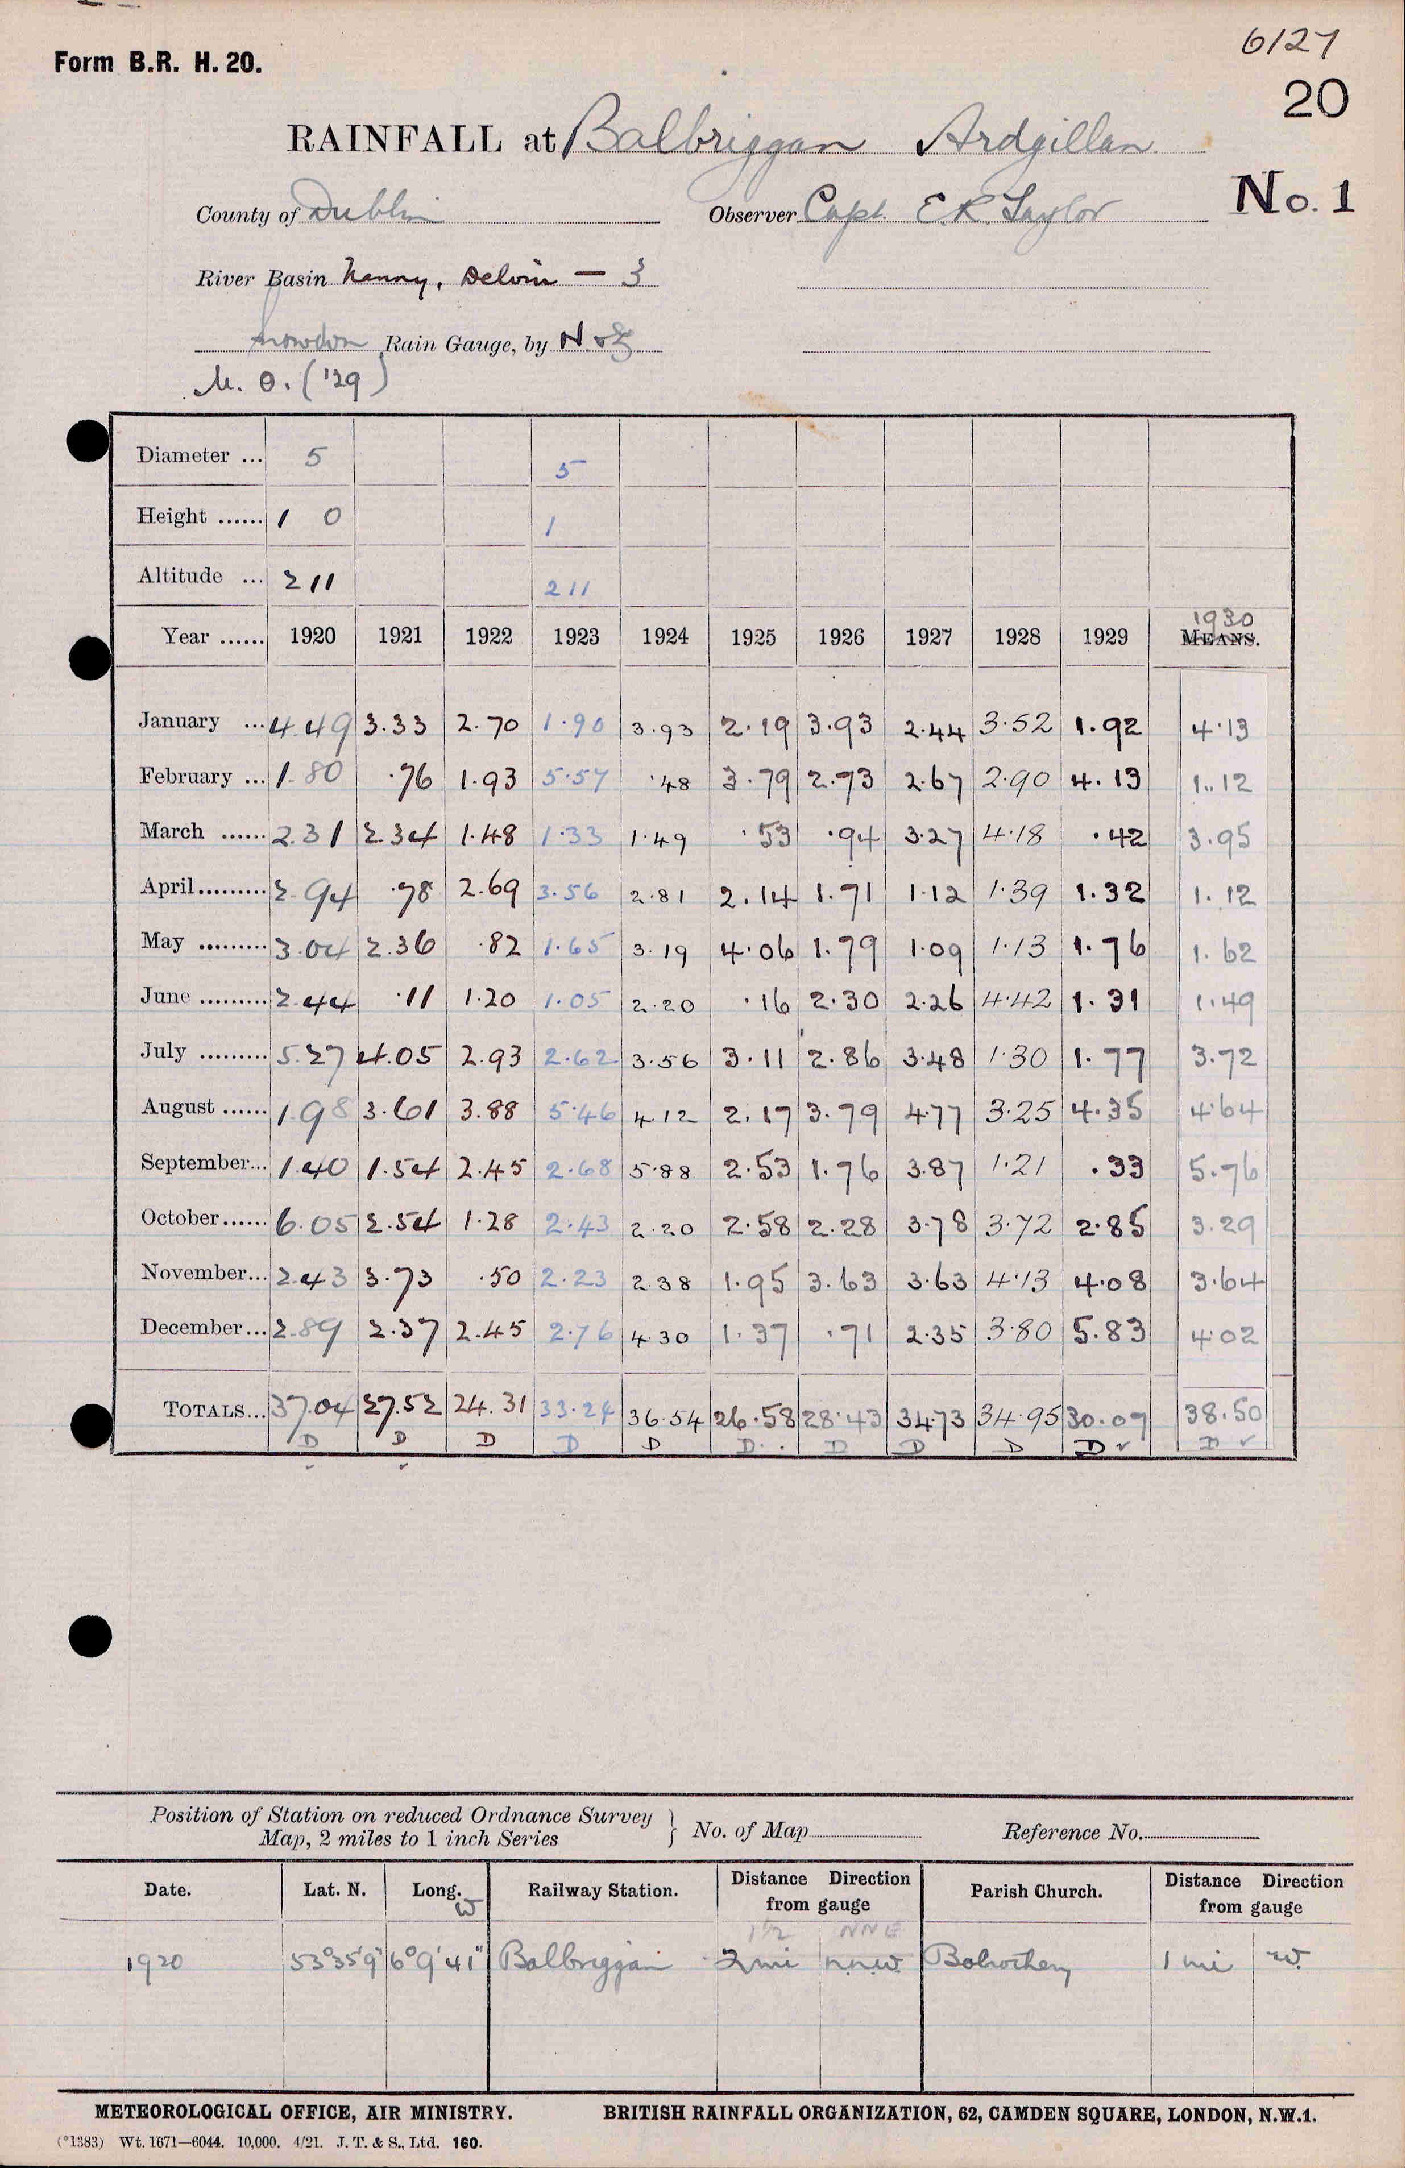 6127
Form B.R. H. 20.
20
RAINFALL at Balbriggan Ardgillan
No. 1
County of Dublin Observer Capt. E.R. Taylor
River Basin Nanny, Delvin — 3
Snowdon Rain Gauge, by N & Z
M. O. ('29)
Diameter ... 5 5
Height ...... 1 0 1
Altitude ... 211 211
Year ...... 1920 1921 1922 1923 1924 1925 1926 1927 1928 1929 1930 MEANS.
January ... 4.49 3.33 2.70 1.90 3.93 2.19 3.93 2.44 3.52 1.92 4.13
February ... 1.80 .76 1.93 5.57 .48 3.79 2.73 2.67 2.90 4.13 1.12
March ...... 2.31 2.34 1.48 1.33 1.49 .53 .94 3.27 4.18 .42 3.95
April ......... 2.94 .78 2.69 3.56 2.81 2.14 1.71 1.12 1.39 1.32 1.12
May ......... 3.04 2.36 .82 1.65 3.19 4.06 1.79 1.09 1.13 1.76 1.62
June ......... 2.44 .11 1.20 1.05 2.20 .16 2.30 2.26 4.42 1.31 1.49
July ......... 5.27 4.05 2.93 2.62 3.56 3.11 2.86 3.48 1.30 1.77 3.72
August ...... 1.98 3.61 3.88 5.46 4.12 2.17 3.79 4.77 3.25 4.35 4.64
September... 1.40 1.54 2.45 2.68 5.88 2.53 1.76 3.87 1.21 .33 5.76
October...... 6.05 2.54 1.28 2.43 2.20 2.58 2.28 3.78 3.72 2.85 3.29
November... 2.43 3.73 .50 2.23 2.38 1.95 3.63 3.63 4.13 4.08 3.64
December... 2.89 2.37 2.45 2.76 4.30 1.37 .71 2.35 3.80 5.83 4.02
TOTALS... 37.04 27.52 24.31 33.24 36.54 26.58 28.43 34.73 34.95 30.07 38.50
D D D D D D D D D D ✓ D ✓
✓ ✓
Position of Station on reduced Ordnance Survey Map, 2 miles to 1 inch Series } No. of Map Reference No.
Date. Lat. N. Long. W Railway Station. Distance Direction from gauge Parish Church. Distance Direction from gauge
1½ NNE
1920 53°35'9" 6°9'41" Balbriggan 2 mi n.n.w. Balrothery 1 mi w.
METEOROLOGICAL OFFICE, AIR MINISTRY. BRITISH RAINFALL ORGANIZATION, 62, CAMDEN SQUARE, LONDON, N.W.1.
(*1383) Wt. 1671—6044. 10,000. 4/21. J. T. & S., Ltd. 160.